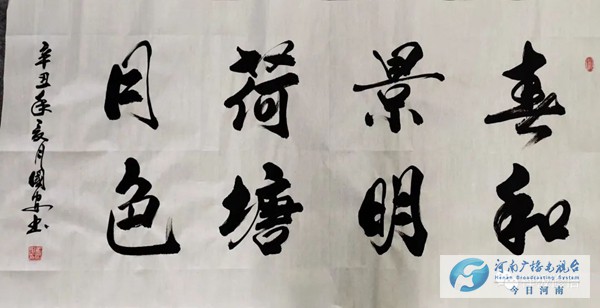 春和
景明
荷塘
月色
辛丑年夏月國安书
河南广播电视台
Henan Broadcasting System
今日河南